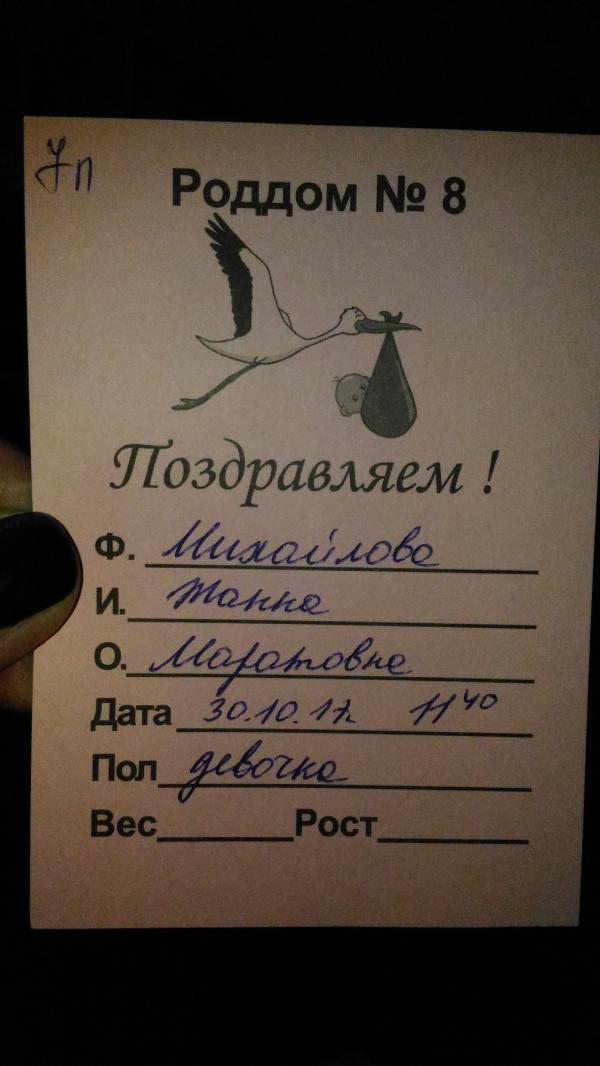 7п
Роддом № 8
Поздравляем !
Ф. Михайлова
И. Жанна
О. Маратовна
Дата 30.10.17. 11 40
Пол девочка
Вес Рост